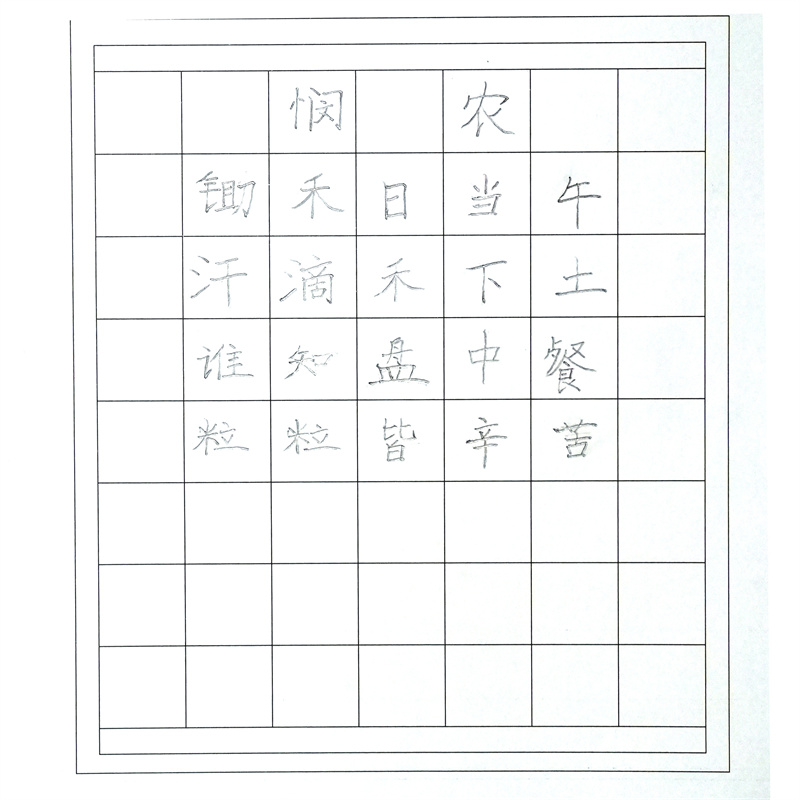 悯 农
锄禾日当午
汗滴禾下土
谁知盘中餐
粒粒皆辛苦